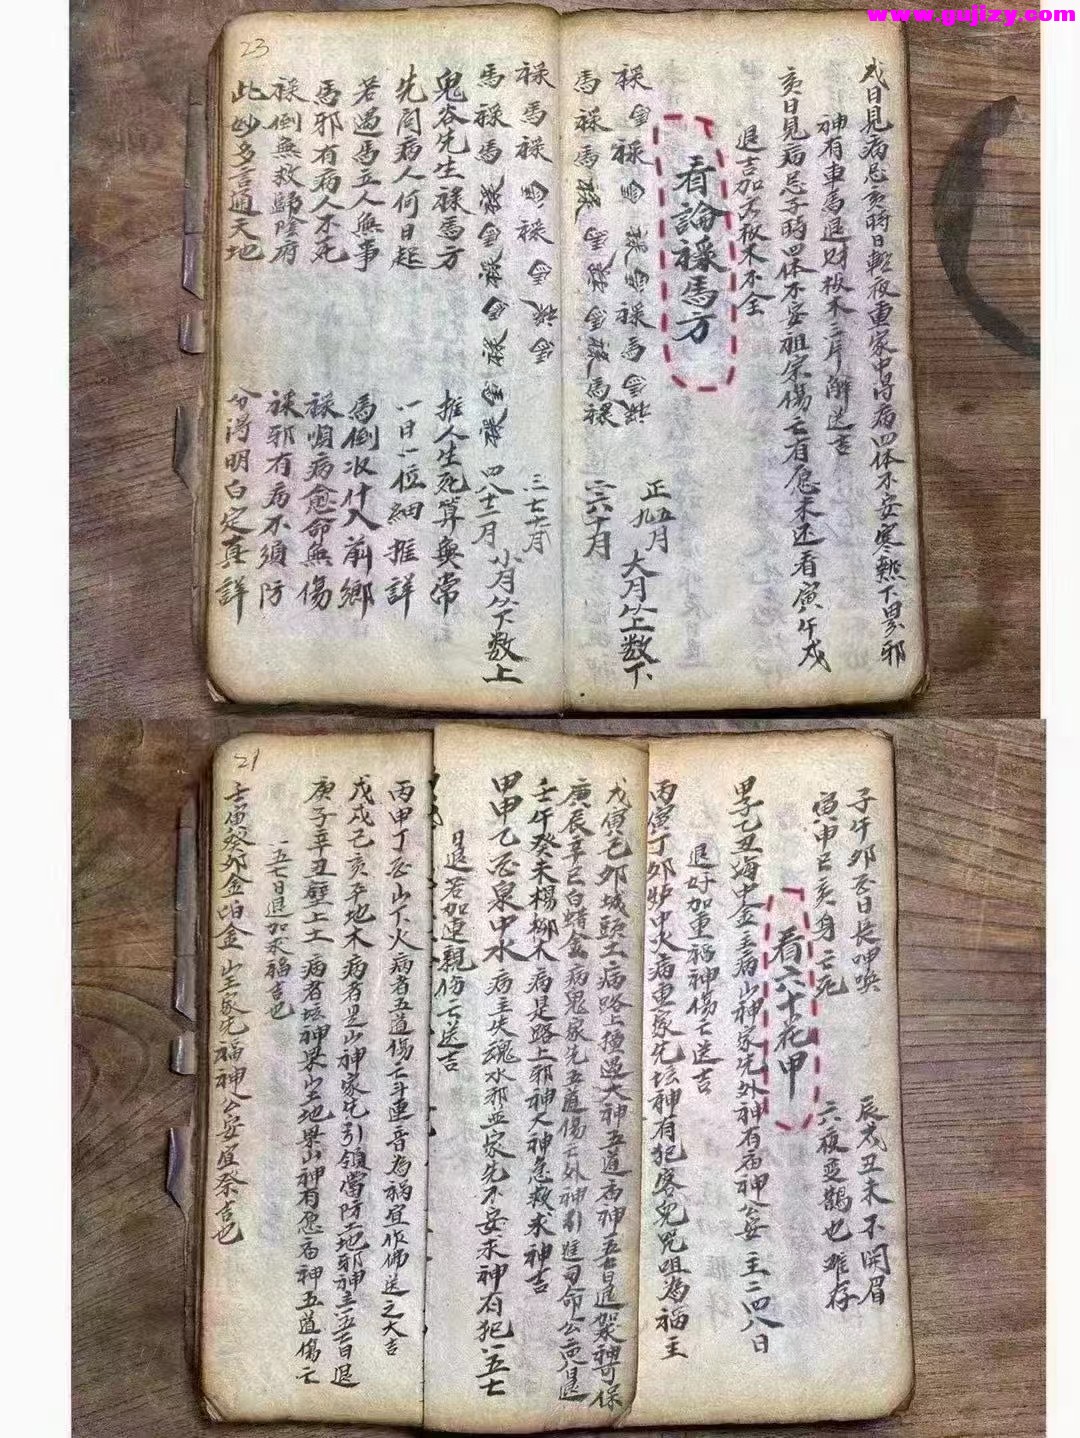 www.gujizy.com
戌日見病忌亥時日輕夜重家中得病四体不安寒熱下界邪
神有車馬退財板木三片解送吉
亥日見病忌子時四体不安祖宗傷亡有愿未还看寅午戌
退吉加大板木不全
看論禄馬方
禄馬禄馬禄馬禄馬禄馬禄
正五九月
大月从上数下
馬禄馬禄馬禄馬禄馬禄
二六十月
禄馬禄馬禄馬禄馬
三七十一月
馬禄馬禄馬禄馬禄馬禄
四八十二月
小月从下数上
鬼谷先生禄馬方
推人生死算無常
先問病人何日起
一日一位細推詳
若遇馬立人無事
馬倒收什入前鄉
馬邪有病人不死
禄順病愈命無傷
禄倒無救歸陰府
禄邪有病不須防
此妙多言通天地
分消明白定真詳
23
子午卯酉日長呻喚
辰戌丑未不開眉
寅申巳亥身亡死
六夜变鵲也难存
看六十花甲
甲子乙丑海中金主病山神家先外神有庙神公安主二四八日
退好加重福神傷亡送吉
丙寅丁卯炉中火病重家先坛神有犯客鬼咒咀為禍主
戊寅己卯城頭土病路上撞過大神五道庙神一五七日退加求神可保
庚辰辛巳白蜡金病鬼家先五道傷亡外神引進司命公安八日退
壬午癸未楊柳木病是路上邪神人神急救求神吉
甲申乙酉泉中水病主失魂水邪並家先不安求神有犯一五七
日退若加連親伤亡送吉
丙申丁酉山下火病者五道傷亡斗連音為禍宜作佛送之大吉
戊戌己亥平地木病者是山神家先引領當防土地邪神主一五七日退
庚子辛丑壁上土病者坛神梁山土地梁山神有愿庙神五道傷亡
一五七日退加求福吉也
壬寅癸卯金白金山主家先福神公安宜祭吉也
21